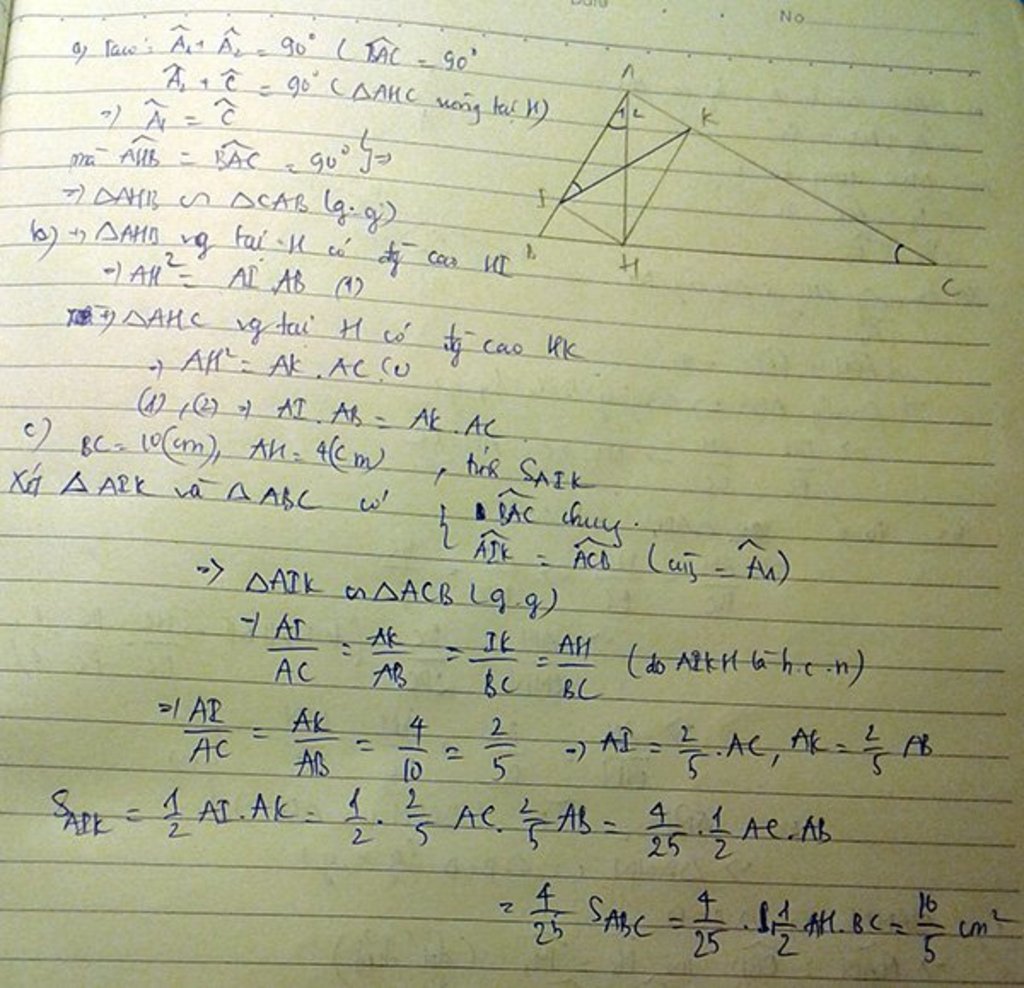 No
a) Ta có: Â₁ + Â₂ = 90° ( B̂AC = 90°
Â₂ + Ĉ = 90° ( △AHC vuông tại H)
=> Â₁ = Ĉ
mà AĤB = BÂC = 90° } =>
=> △AHB ∽ △CAB (g.g)
b) +) △AHB vg tại H có đg cao HI
=> AH² = AI.AB (1)
+) △AHC vg tại H có đg cao HK
=> AH² = AK.AC (2)
(1), (2) => AI.AB = AK.AC
c) BC = 10(cm), AH = 4(cm), tính S_AIK
Xét △AIK và △ABC có { BÂC chung.
AÎK = AĈB (cùg = Â₁)
=> △AIK ∽ △ACB (g.g)
=> AI/AC = AK/AB = IK/BC = AH/BC (do AIKH là h.c.n)
=> AI/AC = AK/AB = 4/10 = 2/5 => AI = 2/5 . AC, AK = 2/5 AB
S_AIK = 1/2 AI.AK = 1/2 . 2/5 AC . 2/5 AB = 4/25 . 1/2 AC.AB
= 4/25 S_ABC = 4/25 . 1/2 AH.BC = 16/5 cm²
A
1 2
K
I
B
H
C